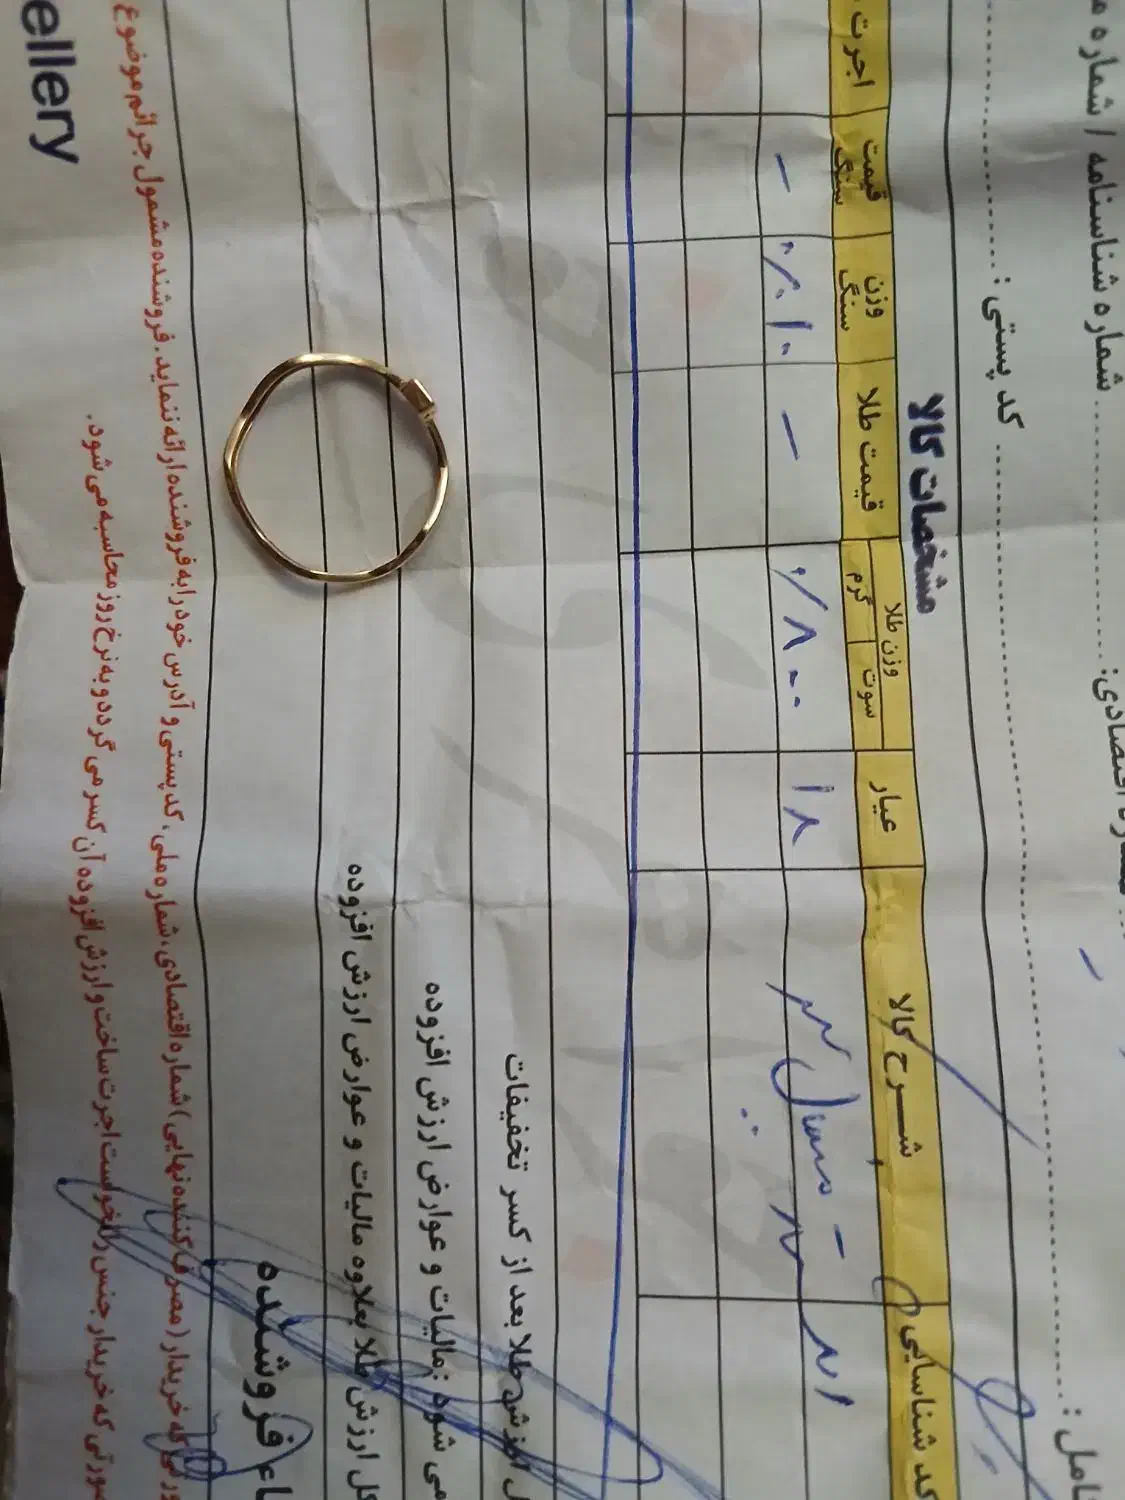 شماره شناسنامه / شماره
اقتصادی:
کد پستی:
مشخصات کالا
کد شناسایی
شرح کالا
عیار
وزن طلا
سوت
گرم
قیمت طلا
وزن سنگ
قیمت سنگ
اجرت
۱۸
۰/۸۰۰
-
۰/۰۱۰
-
ارزش طلا بعد از کسر تخفیفات
می شود : مالیات و عوارض ارزش افزوده
کل ارزش طلا بعلاوه مالیات و عوارض ارزش افزوده
فروشنده
که خریدار (مصرف کننده نهایی) شماره اقتصادی، شماره ملی، کد پستی و آدرس خود را به فروشنده ارائه ننماید. فروشنده مشمول جرائم موضوع
صورتی که خریدار جنس درخواست اجرت ساخت و ارزش افزوده آن کسر می گردد و به نرخ روز محاسبه می شود.
ellery